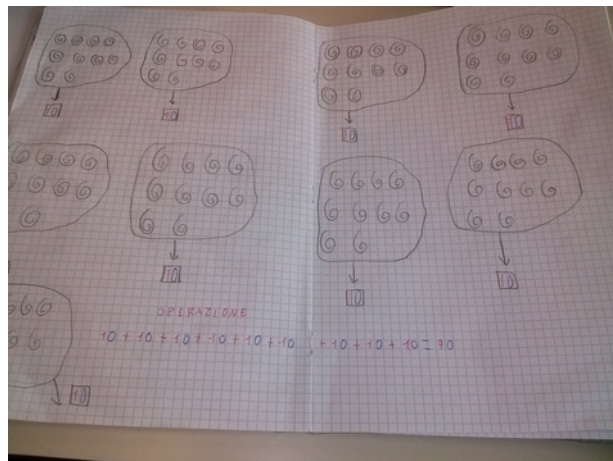 10 10 10 10
10 10 10
OPERAZIONE
10 + 10 + 10 + 10 + 10 + 10 + 10 + 10 + 10 = 90
10